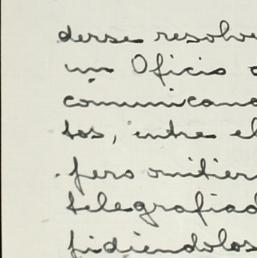 derse resolve
un Oficio
comunicand
tos, entre el
pero omitier
telegrafiad
pidiendolos